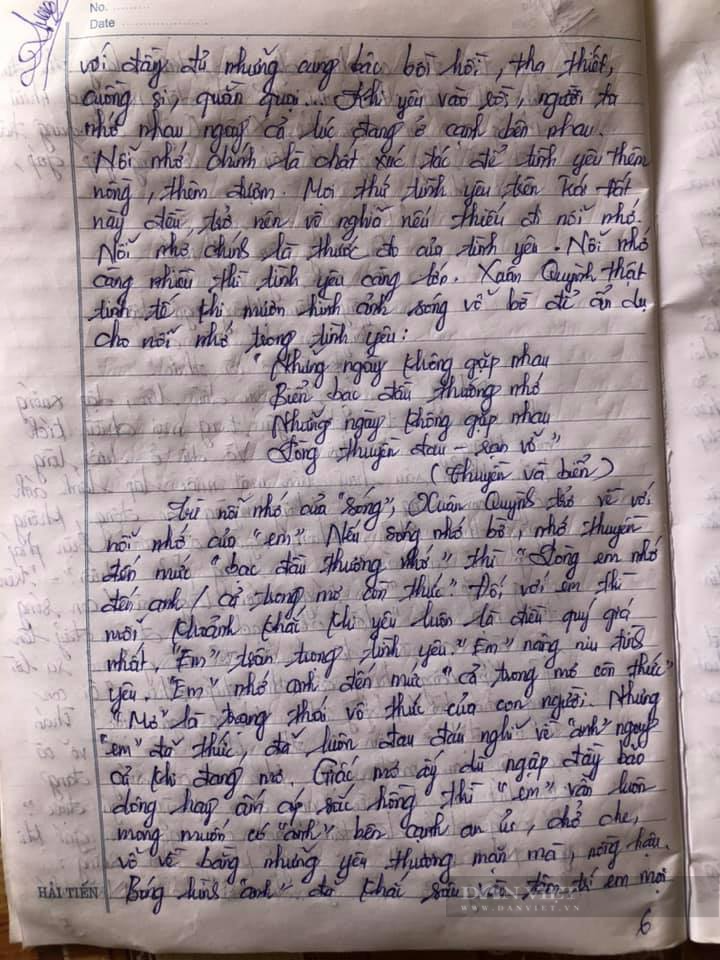 No.
Date
với đầy đủ những cung bậc bồi hồi, tha thiết,
cuồng si, quằn quại... Khi yêu vào rồi, người ta
nhớ nhau ngay cả lúc đang ở cạnh bên nhau.
Nỗi nhớ chính là chất xúc tác để tình yêu thêm
nồng, thêm đượm. Mọi thứ tình yêu trên trái đất
này đều trở nên vô nghĩa nếu thiếu đi nỗi nhớ.
Nỗi nhớ chính là thước đo của tình yêu. Nỗi nhớ
càng nhiều thì tình yêu càng lớn. Xuân Quỳnh thật
tinh tế khi mượn hình ảnh sóng vỗ bờ để ẩn dụ
cho nỗi nhớ trong tình yêu:
"Những ngày không gặp nhau
Biển bạc đầu thương nhớ
Những ngày không gặp nhau
Lòng thuyền đau - rạn vỡ"
(Thuyền và biển)
Từ nỗi nhớ của "sóng", Xuân Quỳnh trở về với
nỗi nhớ của "em". Nếu sóng nhớ bờ, nhớ thuyền
đến mức "bạc đầu thương nhớ" thì "Lòng em nhớ
đến anh / cả trong mơ còn thức". Đối với em thì
mỗi khoảnh khắc khi yêu luôn là điều quý giá
nhất. "Em" trân trọng tình yêu. "Em" nâng niu tình
yêu. "Em" nhớ anh đến mức "cả trong mơ còn thức"
"Mơ" là trạng thái vô thức của con người. Nhưng
"em" đã thức, đã luôn đau đáu nghĩ về "anh" ngay
cả khi đang mơ. Giấc mơ ấy dù ngập đầy bão
dông hay ấm áp sắc hồng thì "em" vẫn luôn
mong muốn có "anh" bên cạnh an ủi, chở che,
vỗ về bằng những yêu thương mặn mà, nồng hậu.
Bóng hình "anh" đã khắc sâu tâm trí em mọi
HẢI TIẾN
DANVIET
WWW.DANVIET.VN
6